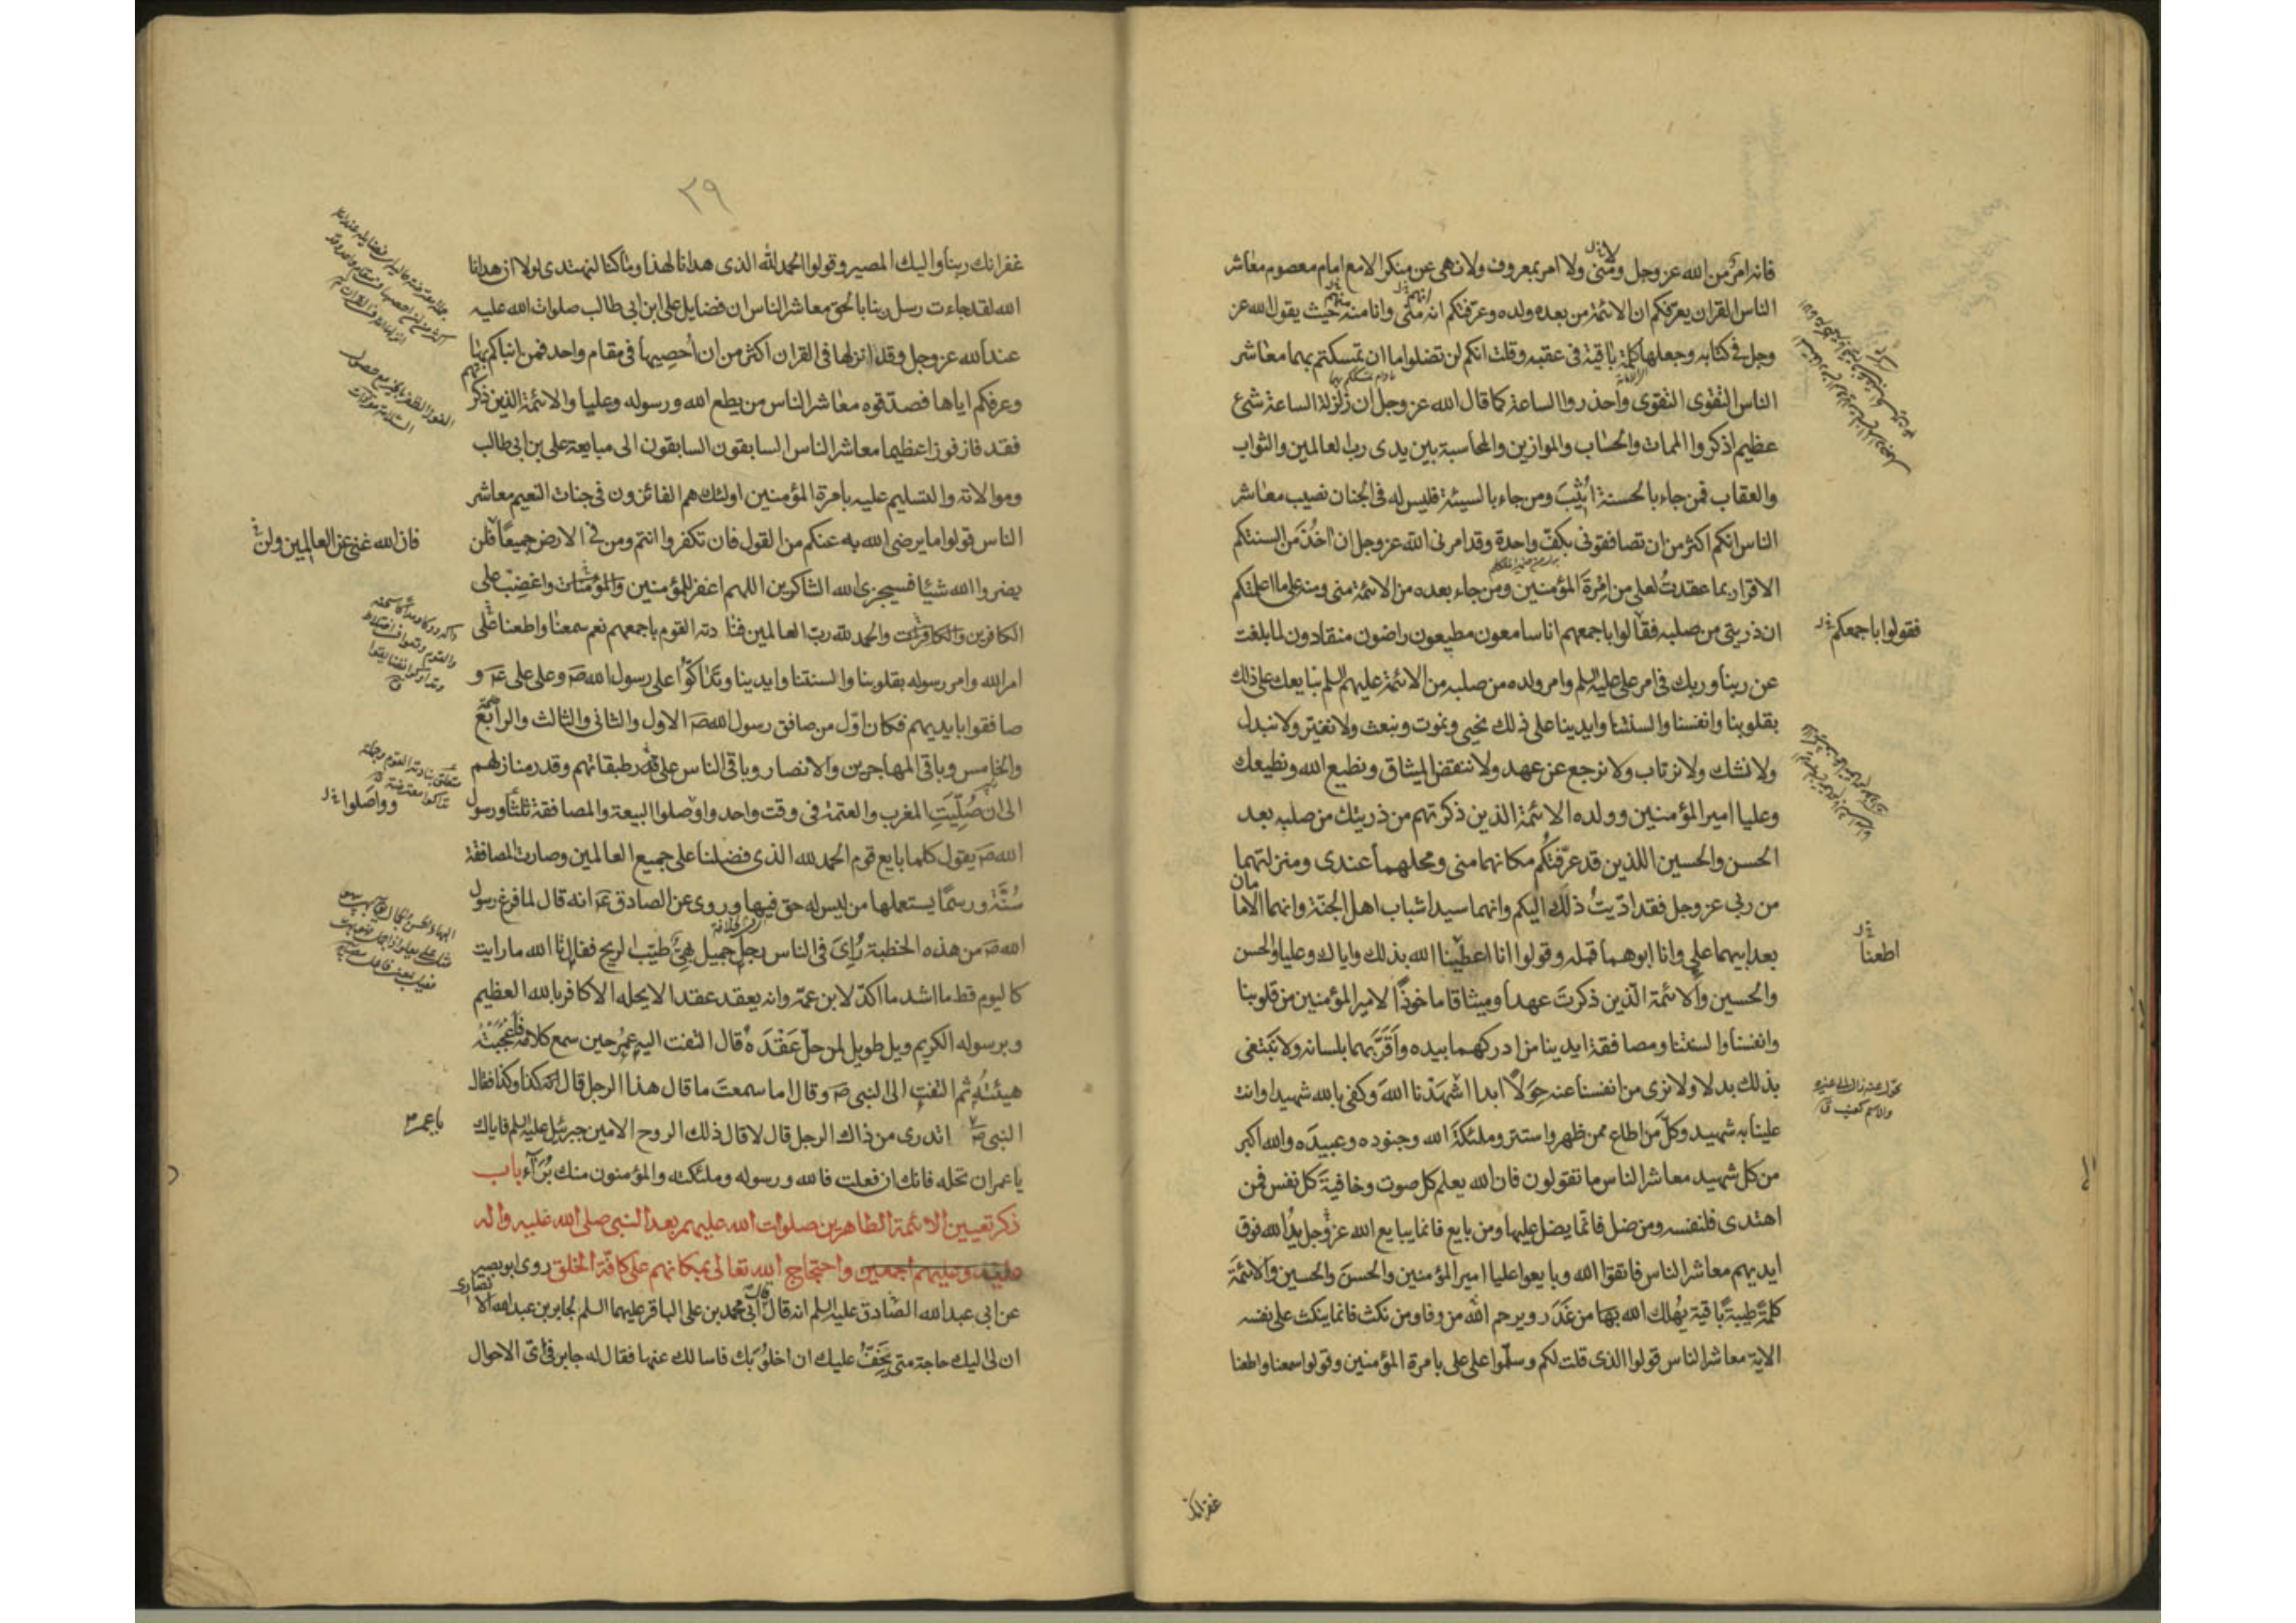 فانه امر من الله عز وجل ومنى ولا امر بمعروف ولا نهى عن منكر الا مع امام معصوم معاشر
الناس القران يعرفكم ان الائمة من بعده ولده وعرفتكم انه منى وانا منه حيث يقول الله عز
وجل فى كتابه وجعلها كلمة باقية فى عقبه وقلت انكم لن تضلوا ما ان تمسكتم بهما معاشر
الناس التقوى التقوى واحذروا الساعة كما قال الله عز وجل ان زلزلة الساعة شئ
عظيم اذكروا الممات والحساب والموازين والمحاسبة بين يدى رب العالمين والثواب
والعقاب فمن جاء بالحسنة اثيب ومن جاء بالسيئة فليس له فى الجنان نصيب معاشر
الناس انكم اكثر من ان تصافقونى بكف واحدة وقد امرنى الله عز وجل ان اخذ من السنتكم
الاقرار بما عقدت لعلى من امرة المؤمنين ومن جاء بعده من الائمة منى ومنه على ما اعلمتكم
ان ذريتى من صلبه فقالوا باجمعهم انا سامعون مطيعون راضون منقادون لما بلغت
فقولوا باجمعكم
عن ربنا وربك فى امر على عليه السلم وامر ولده من صلبه من الائمة عليهم السلم نبايعك على ذلك
بقلوبنا وانفسنا والسنتنا وايدينا على ذلك نحيى ونموت ونبعث ولا نغير ولا نبدل
ولا نشك ولا نرتاب ولا نرجع عن عهد ولا ننقض الميثاق ونطيع الله ونطيعك
وعليا امير المؤمنين وولده الائمة الذين ذكرتهم من ذريتك من صلبه بعد
الحسن والحسين اللذين قد عرفتكم مكانهما منى ومحلهما عندى ومنزلتهما
من ربى عز وجل فقد اديت ذلك اليكم وانهما سيدا شباب اهل الجنة وانهما الامامان
بعد ابيهما على وانا ابوهما قبله وقولوا انا اعطينا الله بذلك واياك وعليا والحسن
اطعنا
والحسين والائمة الذين ذكرت عهدا وميثاقا ماخوذا لامير المؤمنين من قلوبنا
وانفسنا والسنتنا ومصافقة ايدينا من ادركهما بيده واقر بهما بلسانه ولا نبتغى
بذلك بدلا ولا نرى من انفسنا عنه حولا ابدا اشهدنا الله وكفى بالله شهيدا وانت
علينا به شهيد وكل من اطاع ممن ظهر واستتر وملئكة الله وجنوده وعبيده والله اكبر
من كل شهيد معاشر الناس ما تقولون فان الله يعلم كل صوت وخافية كل نفس فمن
اهتدى فلنفسه ومن ضل فانما يضل عليها ومن بايع فانما يبايع الله عز وجل يد الله فوق
ايديهم معاشر الناس فاتقوا الله وبايعوا عليا امير المؤمنين والحسن والحسين والائمة
كلمة طيبة باقية يهلك الله بها من غدر ويرحم الله من وفا ومن نكث فانما ينكث على نفسه
الاية معاشر الناس قولوا الذى قلت لكم وسلموا على على بامرة المؤمنين وقولوا سمعنا واطعنا
غفرانك
٣٩
غفرانك ربنا واليك المصير وقولوا الحمد لله الذى هدانا لهذا وما كنا لنهتدى لولا ان هدانا
الله لقد جاءت رسل ربنا بالحق معاشر الناس ان فضايل على ابن ابى طالب صلوات الله عليه
عند الله عز وجل وقد انزلها فى القران اكثر من ان احصيها فى مقام واحد فمن انباكم بها
وعرفكم اياها فصدقوه معاشر الناس من يطع الله ورسوله وعليا والائمة الذين ذكرتهم
فقد فاز فوزا عظيما معاشر الناس السابقون السابقون الى مبايعة على بن ابى طالب
وموالاته والتسليم عليه بامرة المؤمنين اولئك هم الفائزون فى جنات النعيم معاشر
الناس قولوا ما يرضى الله به عنكم من القول فان تكفروا انتم ومن فى الارض جميعا فلن
فان الله غنى عن العالمين ولن
يضروا الله شيئا فسيجزى الله الشاكرين اللهم اغفر للمؤمنين والمؤمنات واغضب على
الكافرين والكافرات والحمد لله رب العالمين فنادته القوم باجمعهم نعم سمعنا واطعنا على
امر الله وامر رسوله بقلوبنا والسنتنا وايدينا وتداكوا على رسول الله ص وعلى على ع و
صافقوا بايديهم فكان اول من صافق رسول الله ص الاول والثانى والثالث والرابع
والخامس وباقى المهاجرين والانصار وباقى الناس على قدر طبقاتهم وقدر منازلهم
الى ان صليت المغرب والعتمة فى وقت واحد واوصلوا البيعة والمصافقة ثلثا ورسول
وواصلوا
الله ص يقول كلما بايع قوم الحمد لله الذى فضلنا على جميع العالمين وصارت المصافقة
سنة ورسما يستعملها من ليس له حق فيها وروى عن الصادق ع انه قال لما فرغ رسول
الله ص من هذه الخطبة رأى فى الناس رجل جميل بهى طيب الريح فقال تالله ما رايت
كاليوم قط ما اشد ما اكد لابن عمه وانه يعقد عقدا لا يحله الا كافر بالله العظيم
وبرسوله الكريم ويل طويل لمن حل عقده قال التفت اليه عمر حين سمع كلامه فاعجبته
هيئته ثم التفت الى النبى ص وقال اما سمعت ما قال هذا الرجل قال كذا وكذا فقال
النبى ص اتدرى من ذاك الرجل قال لا قال ذلك الروح الامين جبرئيل عليه السلم فاياك
يا عمر
يا عمر ان تحله فانك ان فعلت فالله ورسوله وملئكته والمؤمنون منك براء باب
ذكر تعيين الائمة الطاهرين صلوات الله عليهم بعد النبى صلى الله عليه واله
عليه وعليهم اجمعين واحتجاج الله تعالى بمكانهم على كافة الخلق روى ابو بصير
عن ابى عبد الله الصادق عليه السلم انه قال قال ابى محمد بن على الباقر عليهما السلم لجابر بن عبد الله الانصارى
ان لى اليك حاجة متى يخف عليك ان اخلو بك فاسالك عنها فقال له جابر فى اى الاحوال